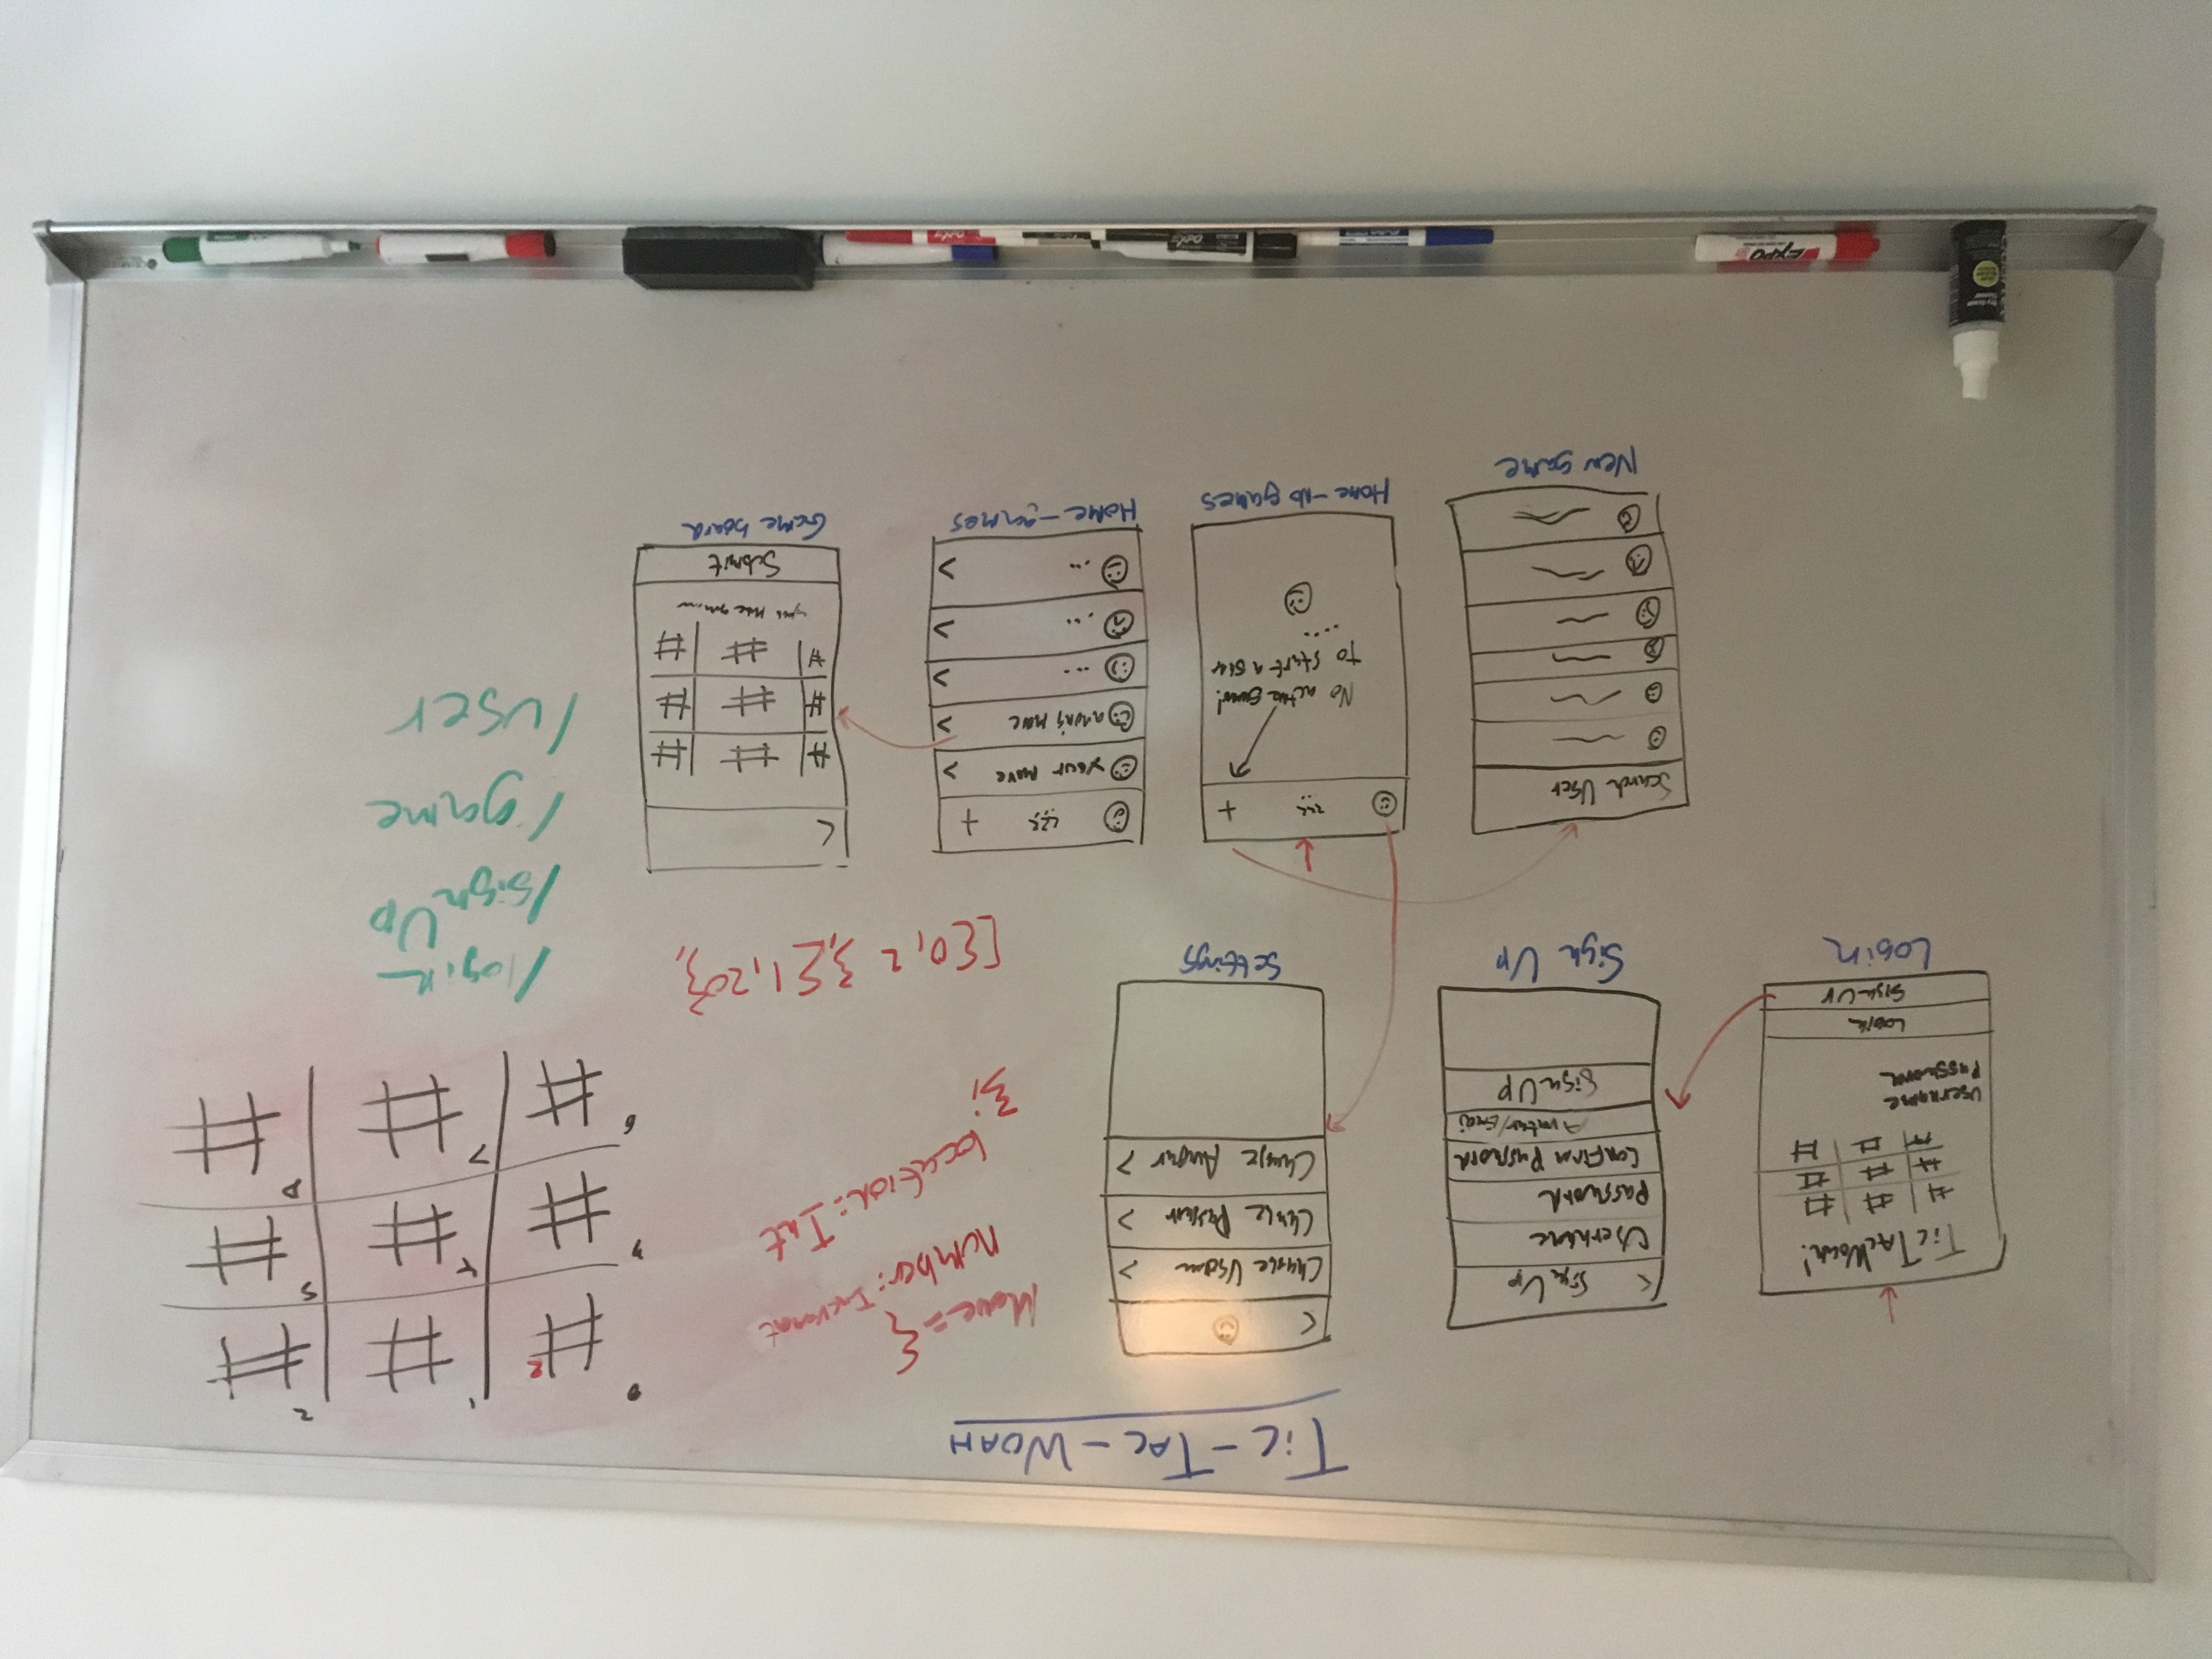 Tic-Tac-Woah
TicTacWoah!
Username
Password
Login
Sign Up
Login
< Sign Up
Username
Password
Confirm Password
Avatar/Emoji
Sign UP
Sign Up
<
>
>
>
Settings
Move = {
number: Increment
location: Int
};
[{0, 2 },{1,20},
0 1 2
2
3 4 5
6 7 8
/login
/signUp
/game
/user
Search User
New game
+
No active
to start a
....
Home-No games
+
your move >
move >
... >
... >
... >
Home-games
<
Submit
Game board
EXPO